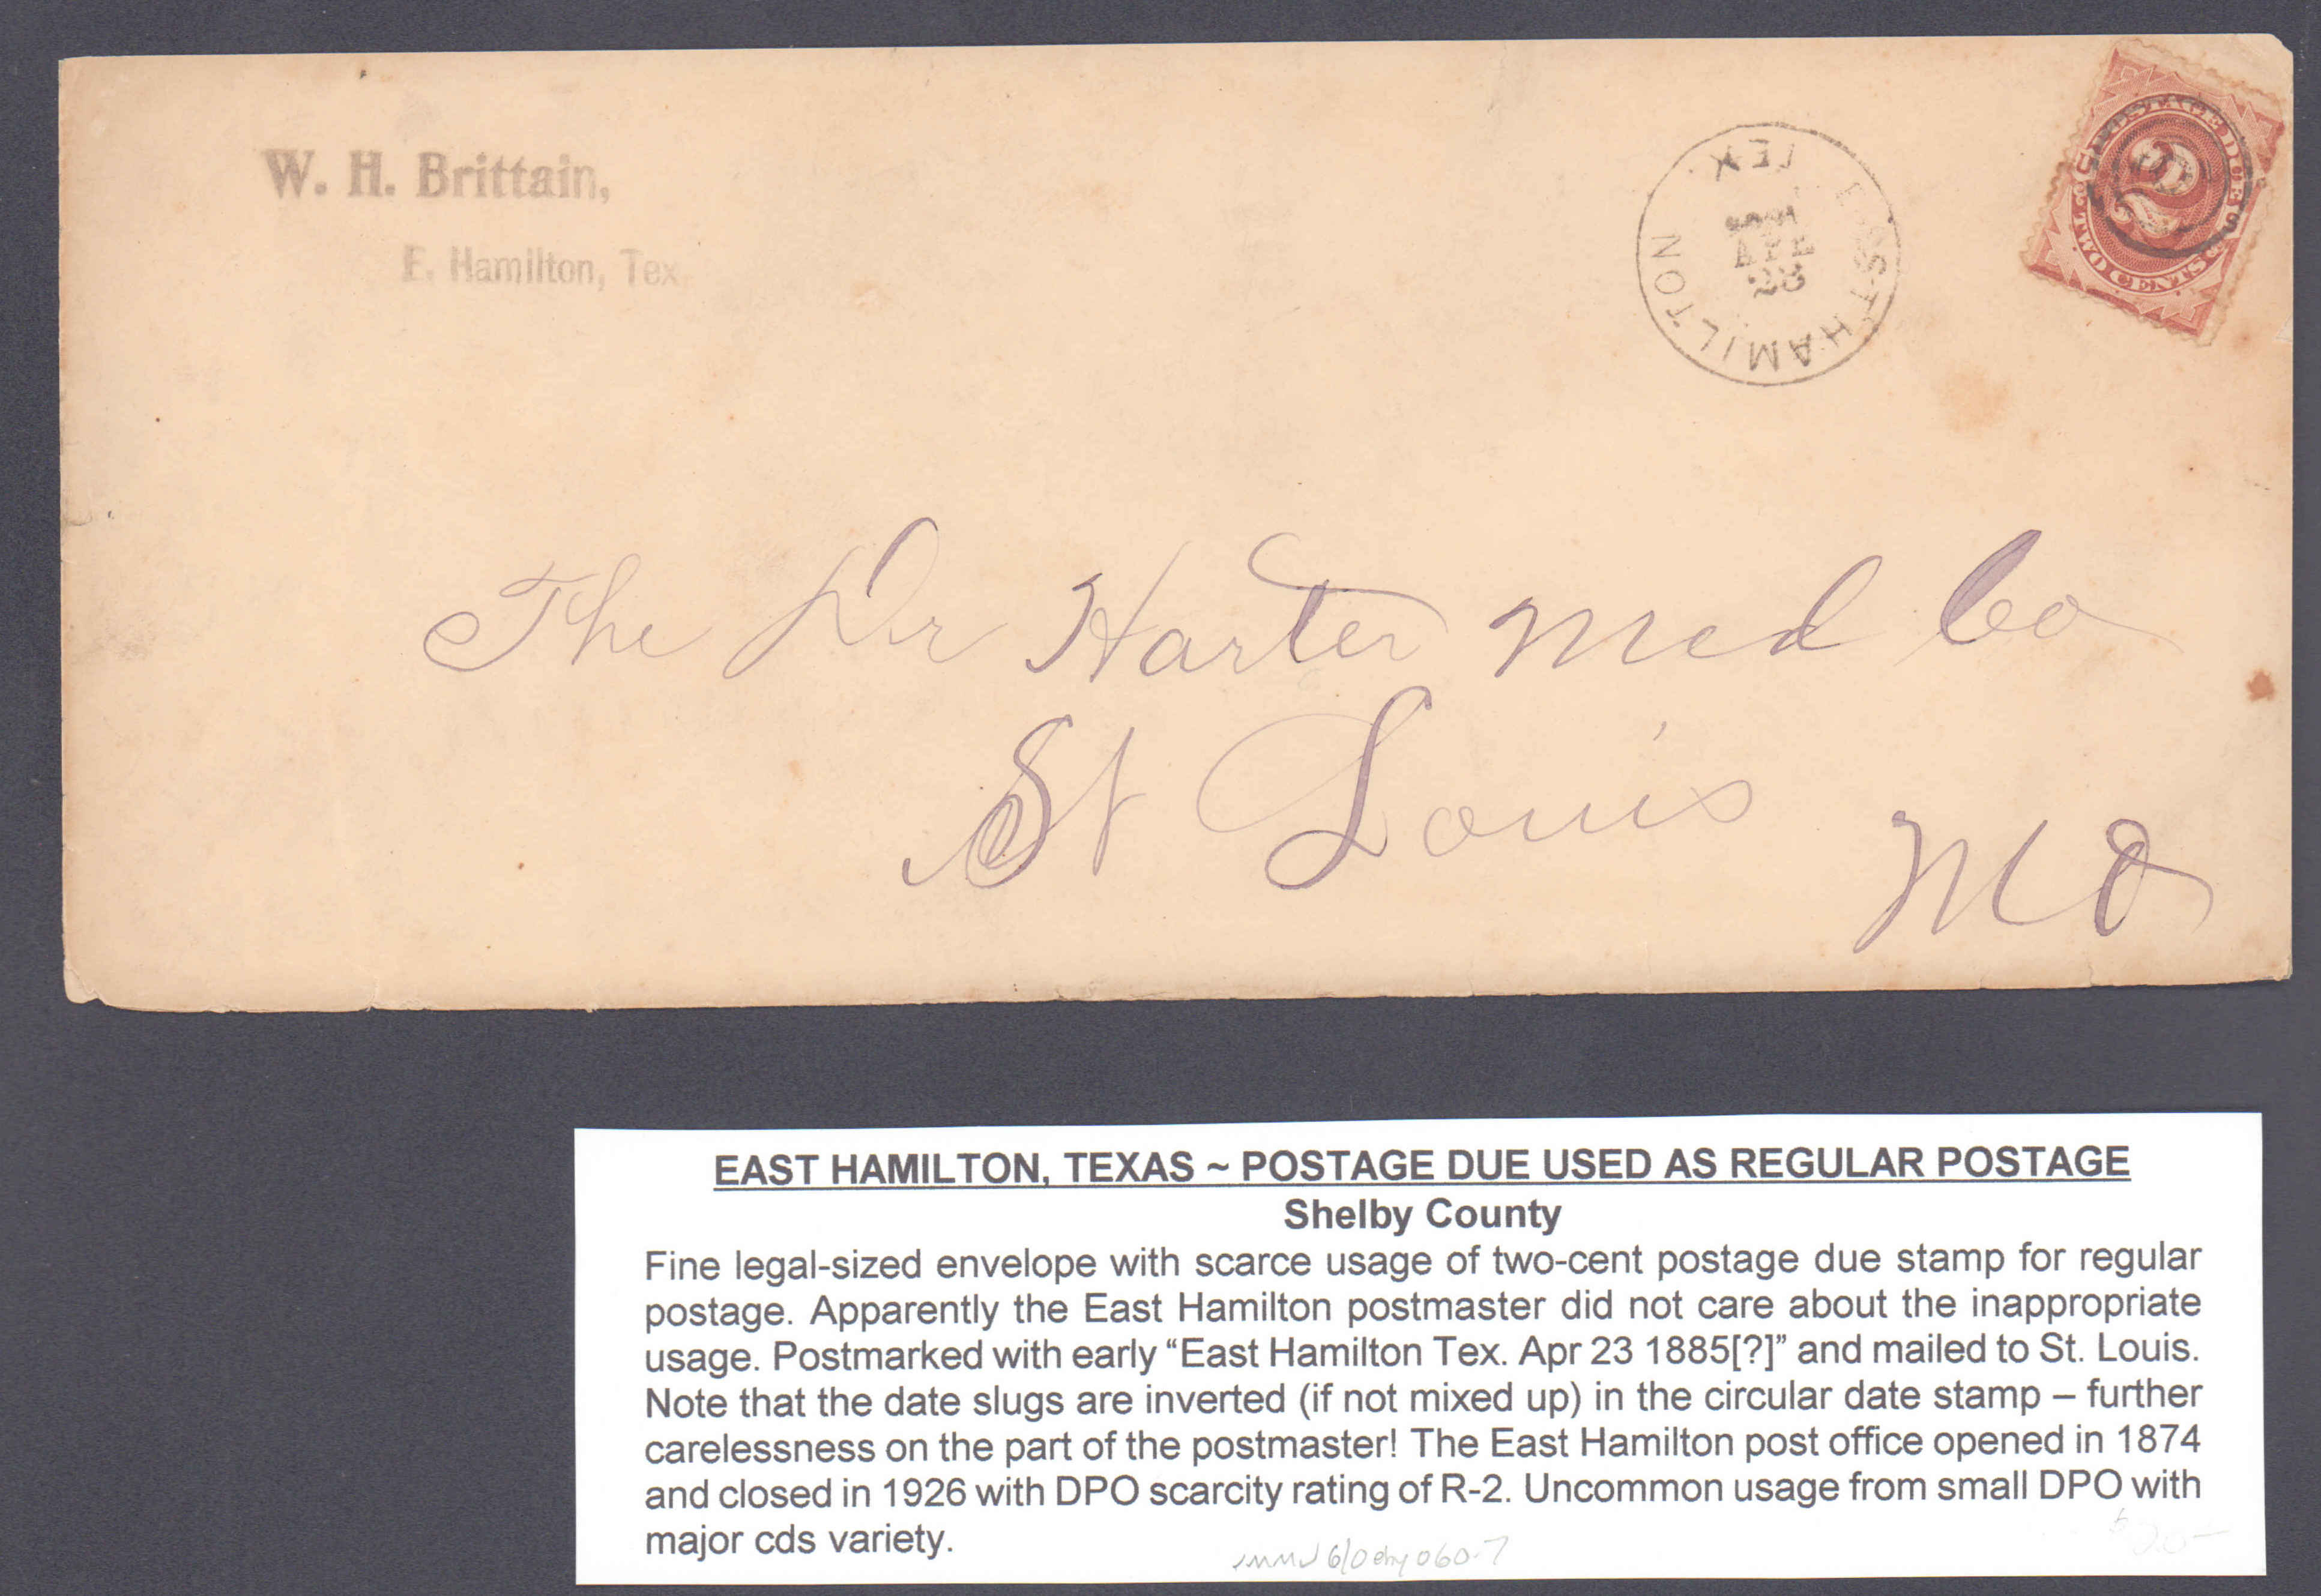 W. H. Brittain,
E. Hamilton, Tex
EAST HAMILTON
TEX
APR
23
POSTAGE DUE
2
TWO CENTS
The Dr Harter Med Co
St Louis
Mo
EAST HAMILTON, TEXAS ~ POSTAGE DUE USED AS REGULAR POSTAGE
Shelby County
Fine legal-sized envelope with scarce usage of two-cent postage due stamp for regular
postage. Apparently the East Hamilton postmaster did not care about the inappropriate
usage. Postmarked with early “East Hamilton Tex. Apr 23 1885[?]” and mailed to St. Louis.
Note that the date slugs are inverted (if not mixed up) in the circular date stamp – further
carelessness on the part of the postmaster! The East Hamilton post office opened in 1874
and closed in 1926 with DPO scarcity rating of R-2. Uncommon usage from small DPO with
major cds variety.